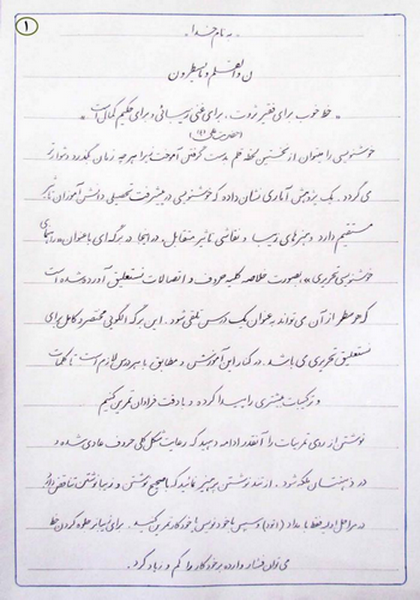 ۱
« به نام خدا »
ن والقلم و ما یسطرون
« خط خوب برای فقیر ثروت، برای غنی زیبائی و برای حکیم کمال است »
(حضرت علی (ع))
خوشنویسی را میتوان از نخستین لحظه قلم بدست گرفتن آموخت زیرا هر چه زمان بگذرد دشوارتر
می گردد. یک پژوهش آماری نشان داده که خوشنویسی در پیشرفت تحصیلی دانش آموزان تأثیر
مستقیم دارد و هنرهای زیبا و نقاشی تاثیر متقابل. در اینجا در برگه ای با عنوان «راهنمای
خوشنویسی تحریری» بصورت خلاصه کلیه حروف و اتصالات نستعلیق آورده شده است
که هر سطر از آن می تواند به عنوان یک درس تلقی شود. این برگه الگویی مختصر و کامل برای
نستعلیق تحریری می باشد. در کنار این آموزش و مطابق با هر درس لازم است تا کلمات
و ترکیبات بیشتری را پیدا کرده و با دقت فراوان تمرین کنیم
نوشتن از روی تمرینات را آنقدر ادامه دهید که رعایت شکل کلی حروف عادی شده و
در ذهنتان ملکه شود. از تند نوشتن پرهیز نمائید که با صحیح نوشتن و زیبا نوشتن تناقض دارد
در مراحل اولیه فقط با مداد (اتود) و سپس با خودنویس یا خودکار تمرین کنید. برای زیباتر جلوه کردن خط
می توان فشار وارده بر خودکار را کم و زیاد کرد.